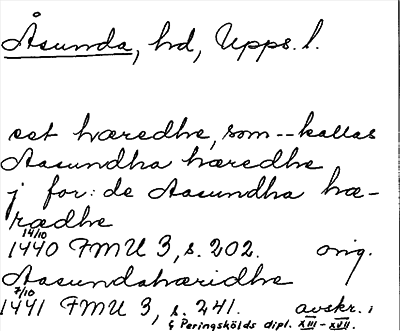 Åsunda, hd, Upps. l.
eet hæredhe, som -- kallas
Aasundha hæredhe
j for: de Aasundha hæ-
rædhe
14/10
1440 FMU 3, s. 202. orig.
Aasundahæridhe
7/10
1441 FMU 3, s. 241. avskr. i
Peringskölds dipl. XIII-XVII.